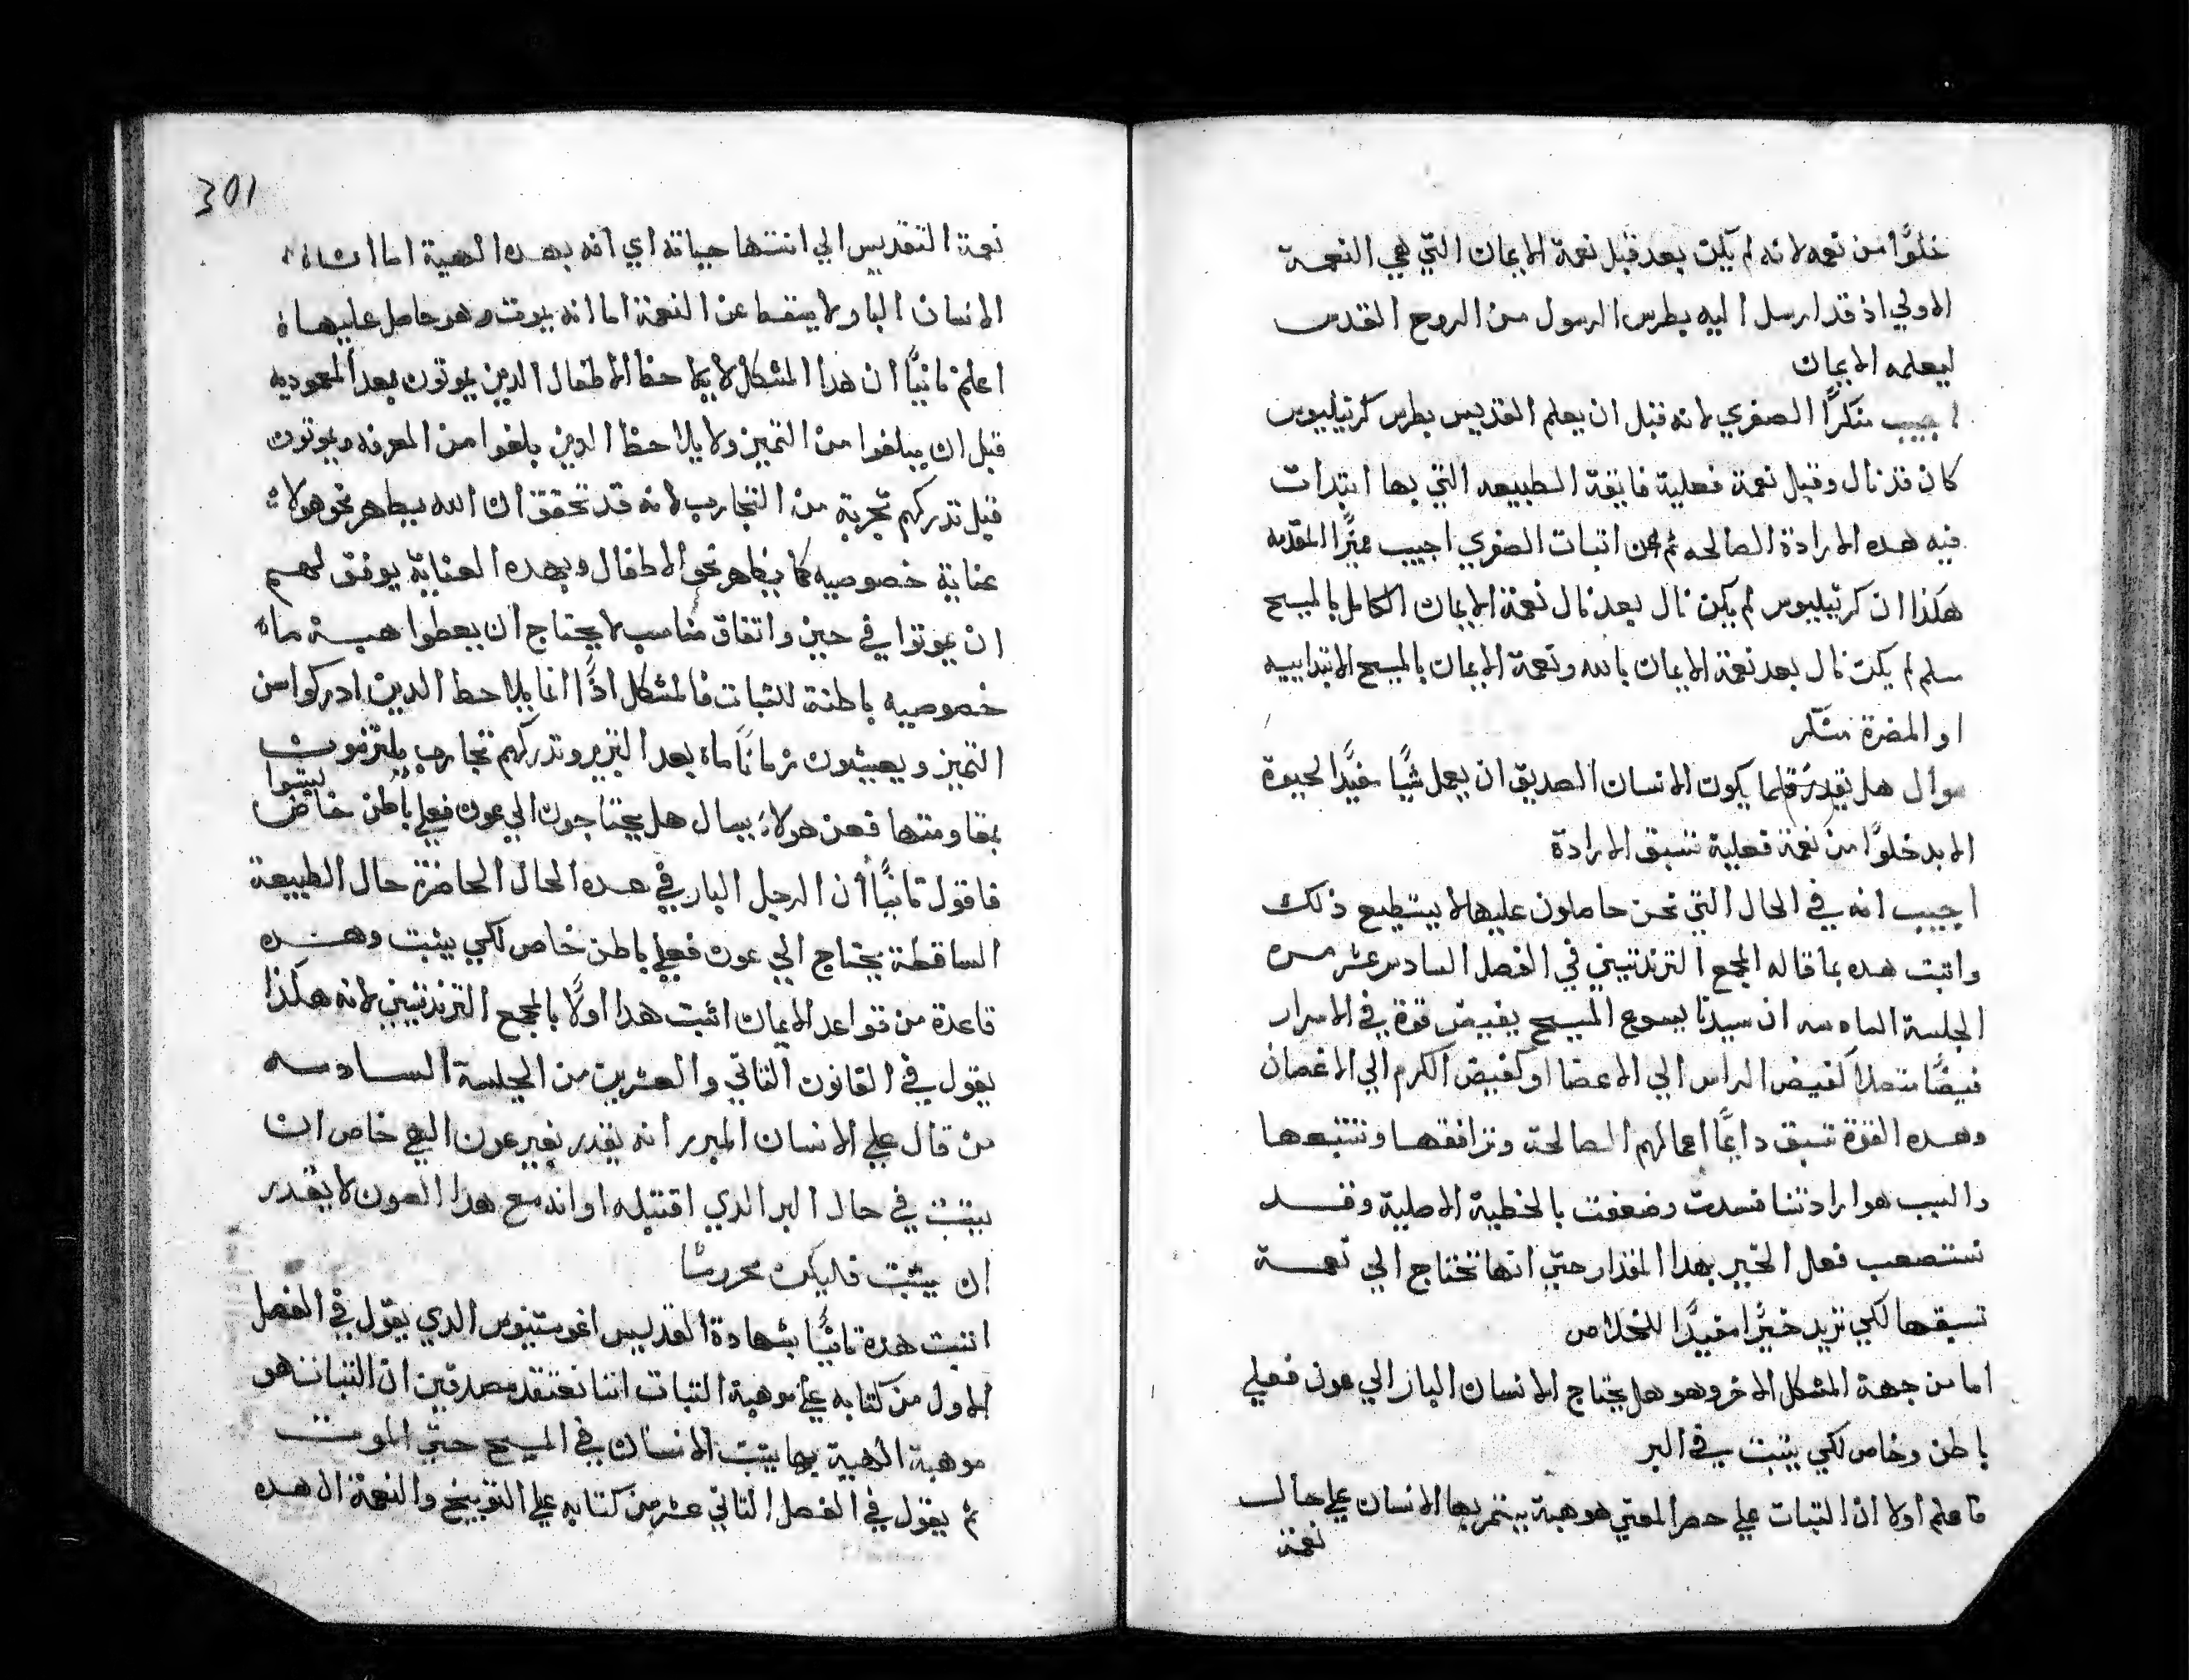 خلوًا من نعمه لانه لم يكن بعد قبل نعمة الايمان التي هي النعمة
الاولي اذ قد ارسل اليه بطرس الرسول من الروح القدس
ليعلمه الايمان
اجيب منكرًا الصغري لانه قبل ان يعلم القديس بطرس كرنيليوس
كان قد نال وقبل نعمة فعلية فايقة الطبيعه التي بها ابتدات
فيه هده الارادة الصالحه ثم عن اتبات الصغري اجيب مميزًا المقدمه
هكذا ان كرنيليوس لم يكن نال بعد نال نعمة الايمان الكامل بالمسيح
مسلم لم يكن نال بعد نعمة الايمان بالله ونعمة الايمان بالمسيح الابتداييه
او المضمرة منكر
سوال هل يقدر قلما يكون الانسان الصديق ان يعمل شيًا مفيدًا لحيوة
الابد خلوًا من نعمة فعلية تسبق الارادة
اجيب انه في الحال التي نحن حاصلون عليها لا يستطيع ذلك
واتبت هده بما قاله المجمع التريدنتيني في الفصل السادس عشر من
الجلسة السادسه ان سيدنا يسوع المسيح يفيض قوة في الابرار
فيضًا متصلاً كفيض الراس الي الاعضا او كفيض الكرم الي الاغصان
وهده القوة تسبق دايمًا اعمالهم الصالحة وترافقها وتتبعها
والسبب هو ارادتنا فسدت وضعفت بالخطية الاصلية وقد
تستصعب فعل الخير بهدا المقدار حتي انها تحتاج الي نعمة
تسبقها لكي تريد خيرًا مفيدًا للخلاص
اما من جهة المشكل الاخر وهو هل يحتاج الانسان البار الي عون فعلي
باطن وخاص لكي يتبت في البر
فاعلم اولا ان التبات علي حصر المعني هو هبة يستمر بها الانسان علي حال
نعمة
301
نعمة التقديس الي انتها حياته اي انه بهده الهبة اما ان
الانسان البار لا يسقط عن النعمة اما انه يموت وهو حاصل عليها
اعلم تانيًا ان هدا المشكل لا يلاحظ الاطفال الدين يموتون بعد المعموديه
قبل ان يبلغوا سن التمييز ولا يلاحظ الدين بلغوا سن المعرفه ويموتون
قبل تدركهم تجربة من التجارب لانه قد تحقق ان الله يظاهر نحو هولاء
عناية خصوصيه كما يظاهر نحو الاطفال وبهده العناية يوفق لهم
ان يموتوا في حين واتفاق مناسب لا يحتاج ان يعطوا هبة ما
خصوصيه باطنة للتبات فالمشكل ادًا انما يلاحظ الدين ادركوا سن
التمييز ويعيشون زمانًا ما بعد التبرير وتدركهم تجارب يلتزمون
بمقاومتها فعن هولاء يسال هل يحتاجون الي عون فعلي باطن خاص ليتبتوا
فاقول تانيًا ان الرجل البار في هده الحال الحاضرة حال الطبيعة
الساقطة يحتاج الي عون فعلي باطن خاص لكي يتبت وهده
قاعدة من قواعد الايمان اتبت هدا اولًا بالمجمع التريدنتيني لانه هكذا
يقول في القانون التاني والعشرين من الجلسة السادسه
من قال علي الانسان المبرر انه يقدر بغير عون الهي خاص ان
يتبت في حال البر الدي اقتبله او انه مع هدا العون لا يقدر
ان يتبت فليكن محرومًا
اتبت هده تانيًا بشهادة القديس اغوستينوس الدي يقول في الفصل
الاول من كتابه علي موهبة التبات اننا نعتقد مصدقين ان التبات هو
موهبة الهية بها يتبت الانسان في المسيح حتي الموت
ثم يقول في الفصل التاني عشر من كتابه علي التوبيخ والنعمة ان هده